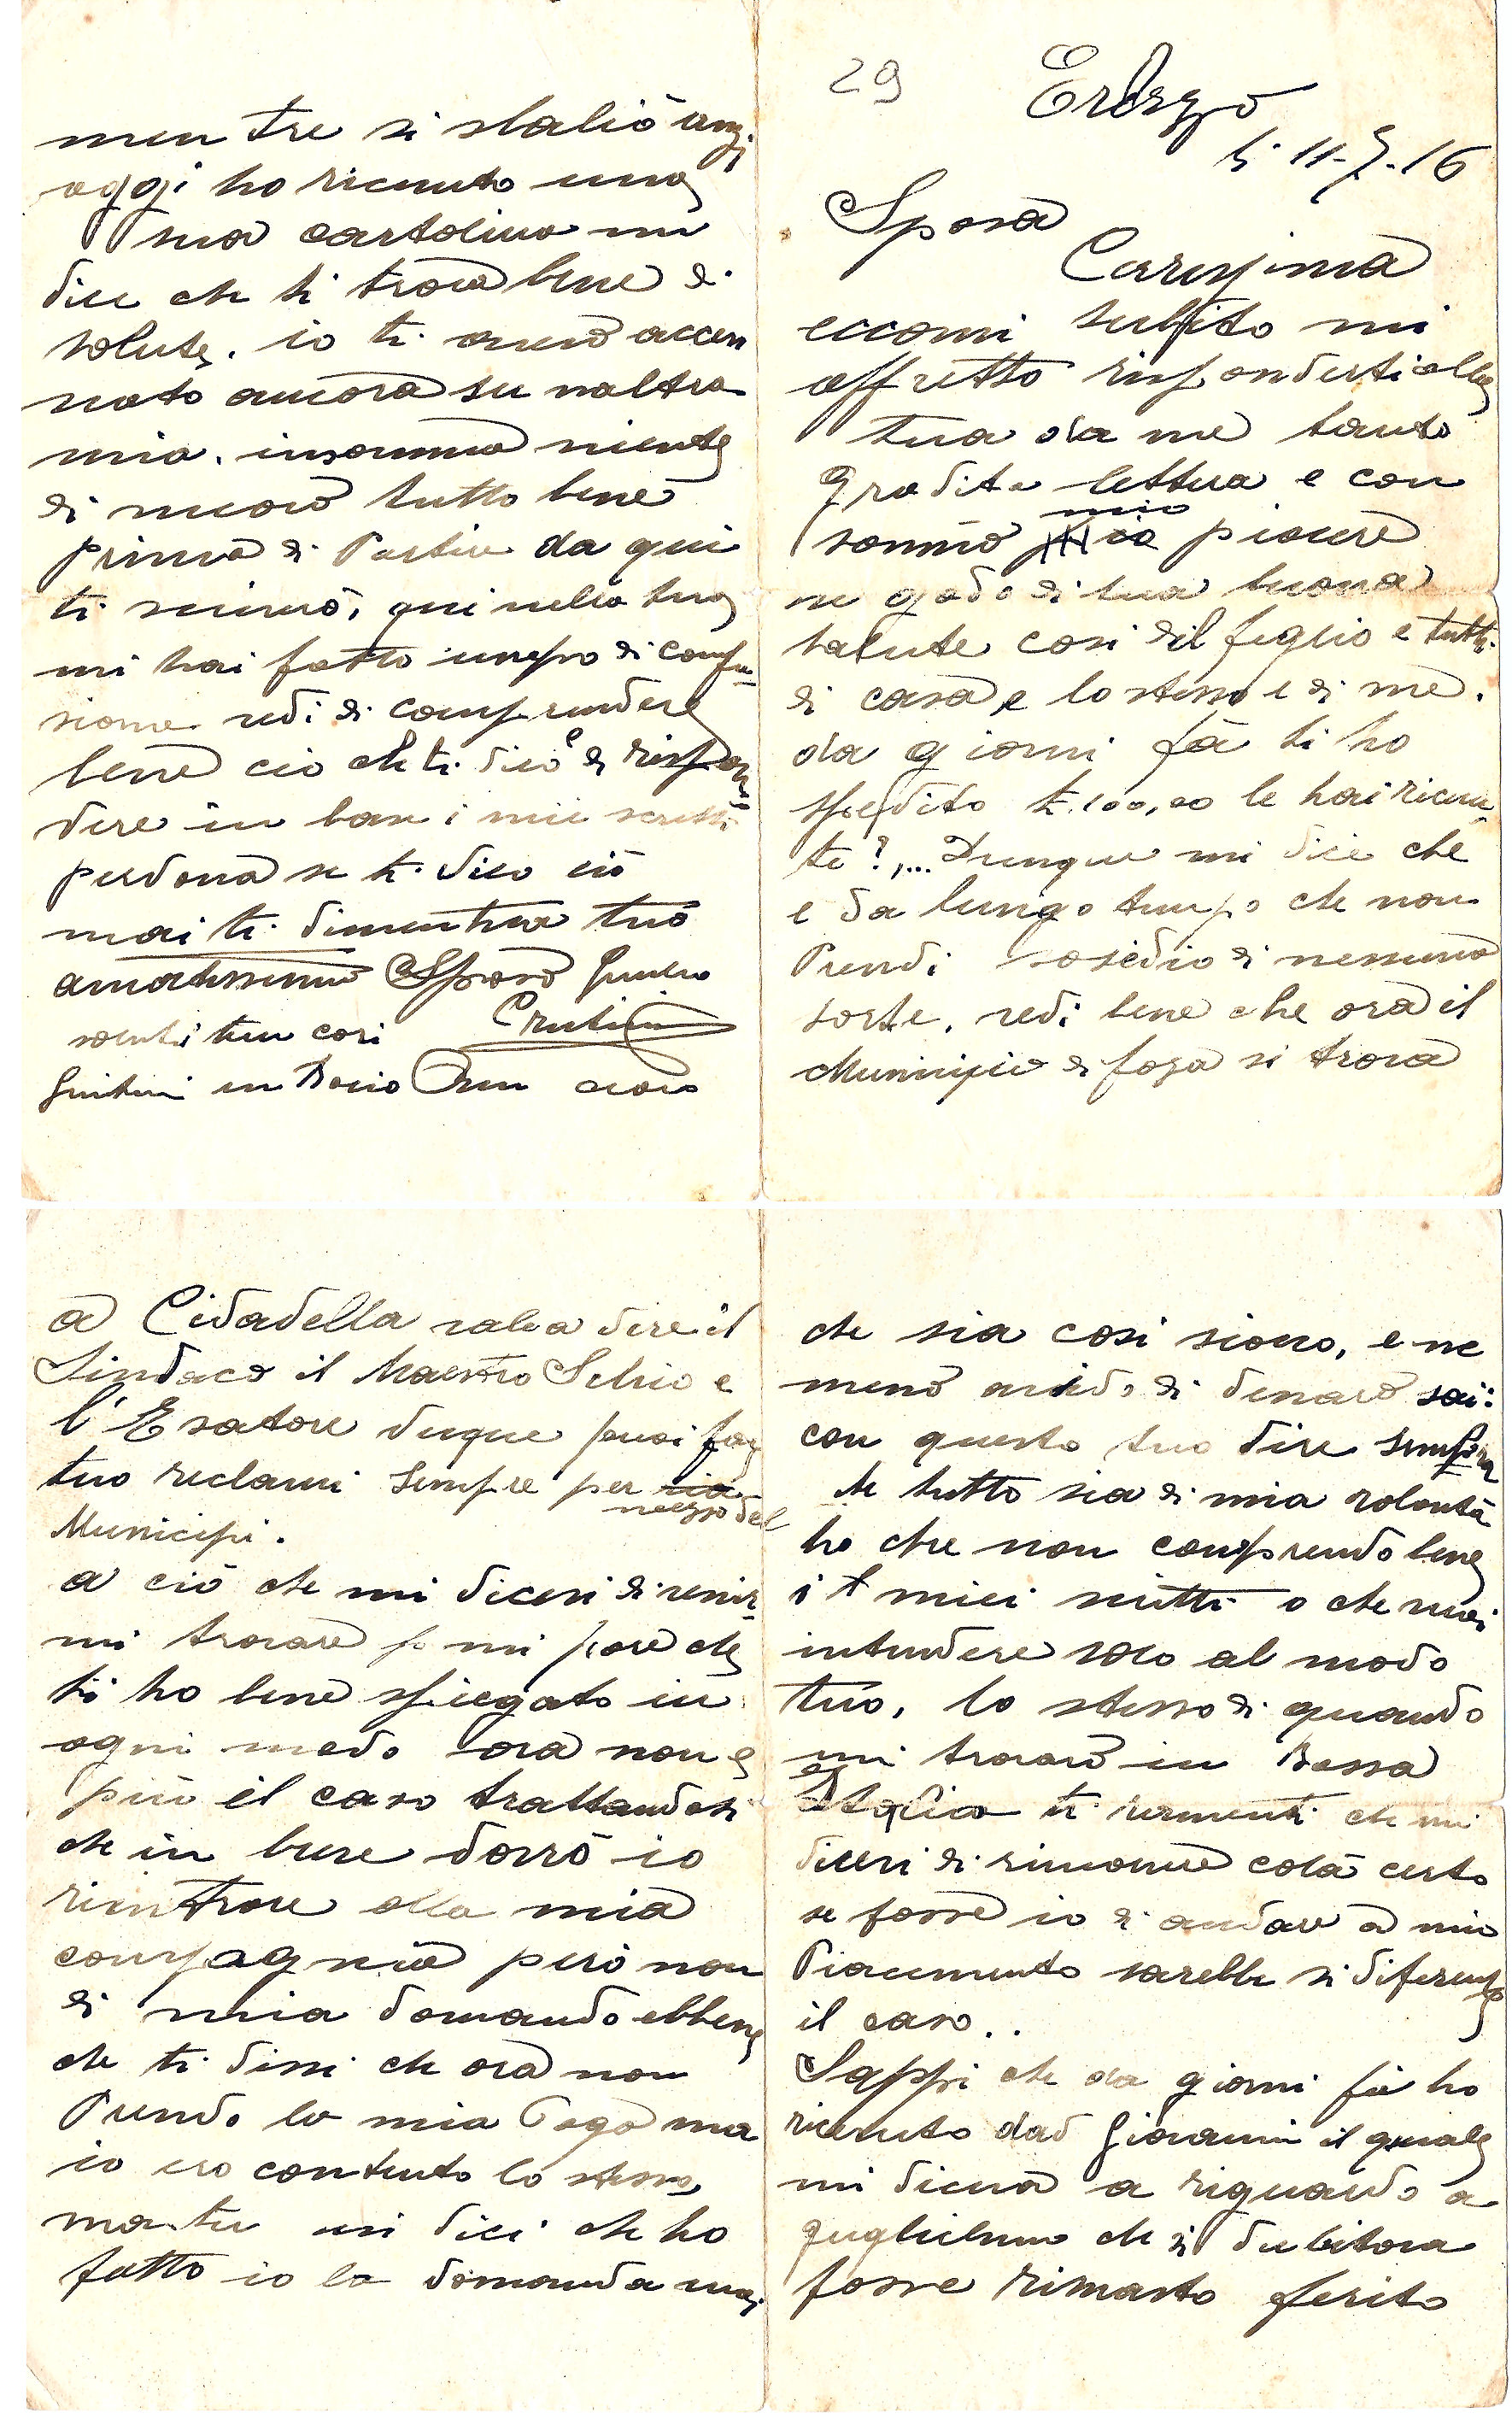 29
li 11-7-16
Sposa
Carissima
eccomi subito mi
affretto risponderti alla
tua da me tanto
gradita lettera e con
sommo mio piacere
ne godo di tua buona
salute cosi dil figlio e tutti
di casa, e lo stesso e di me.
da giorni fà ti ho
spedito £.100,00 le hai ricevu-
te?,... Dunque mi dice che
e da lungo tempo che non
Prendi sosidio di nessuna
sorte, vedi bene che ora il
Municipio di foza si trova
a Cidadella valea dire il
Sindaco il Maestro e
l'Esatore duque puoi far
tuo reclami sempre per mezzo del
Municipi.
a ciò che mi dicevi di venir-
mi trovare mi pare che
ti ho bene spiegato in
ogni modo ora non e
più il caso trattandosi
che in breve dovrò io
rientrare alla mia
compagnia però non
di mia domando ebbene
che ti dissi che ora non
Prendo la mia Paga ma
io ero contento lo stesso,
ma tu mi dici che ho
fatto io la domanda mai
che sia cosi siono, e ne
meno avido di denaro sai:
con questo tuo dire sempra
che tutto sia di mia volontà
ho che non comprendo bene
i miei scritti o che vuoi
intendere solo al modo
tuo, lo stesso di quando
mi trovavo in Bassa
Italia ti ramenti che mi
dicevi di rimanere colà certo
se fosse io di andare a mio
Piacimento sarebbe si diferente
il caso..
Sappi che da giorni fà ho
ricevuto dad Giovanni il quale
mi diceva a riguardo a
guglielmo che si dubitava
fosse rimasto ferito
mentre si sbaliò anzi
oggi ho ricevuto una
sua cartolina mi
dice che ti trova bene di
salute. io ti avevo accen
nato ancora su naltra
mia. insomma niente
di nuovo tutto bene
prima di Partire da qui
ti scriverò, qui nella tua
mi hai fatto unepo di confu-
sione vedi di comprendere
bene ciò che ti dico e di rispon
dere in base i miei scritti
perdona se ti dico ciò
mai ti dimentica tuo
amatissimo Sposo
saluti tuoi cari
Genitori un Bacio